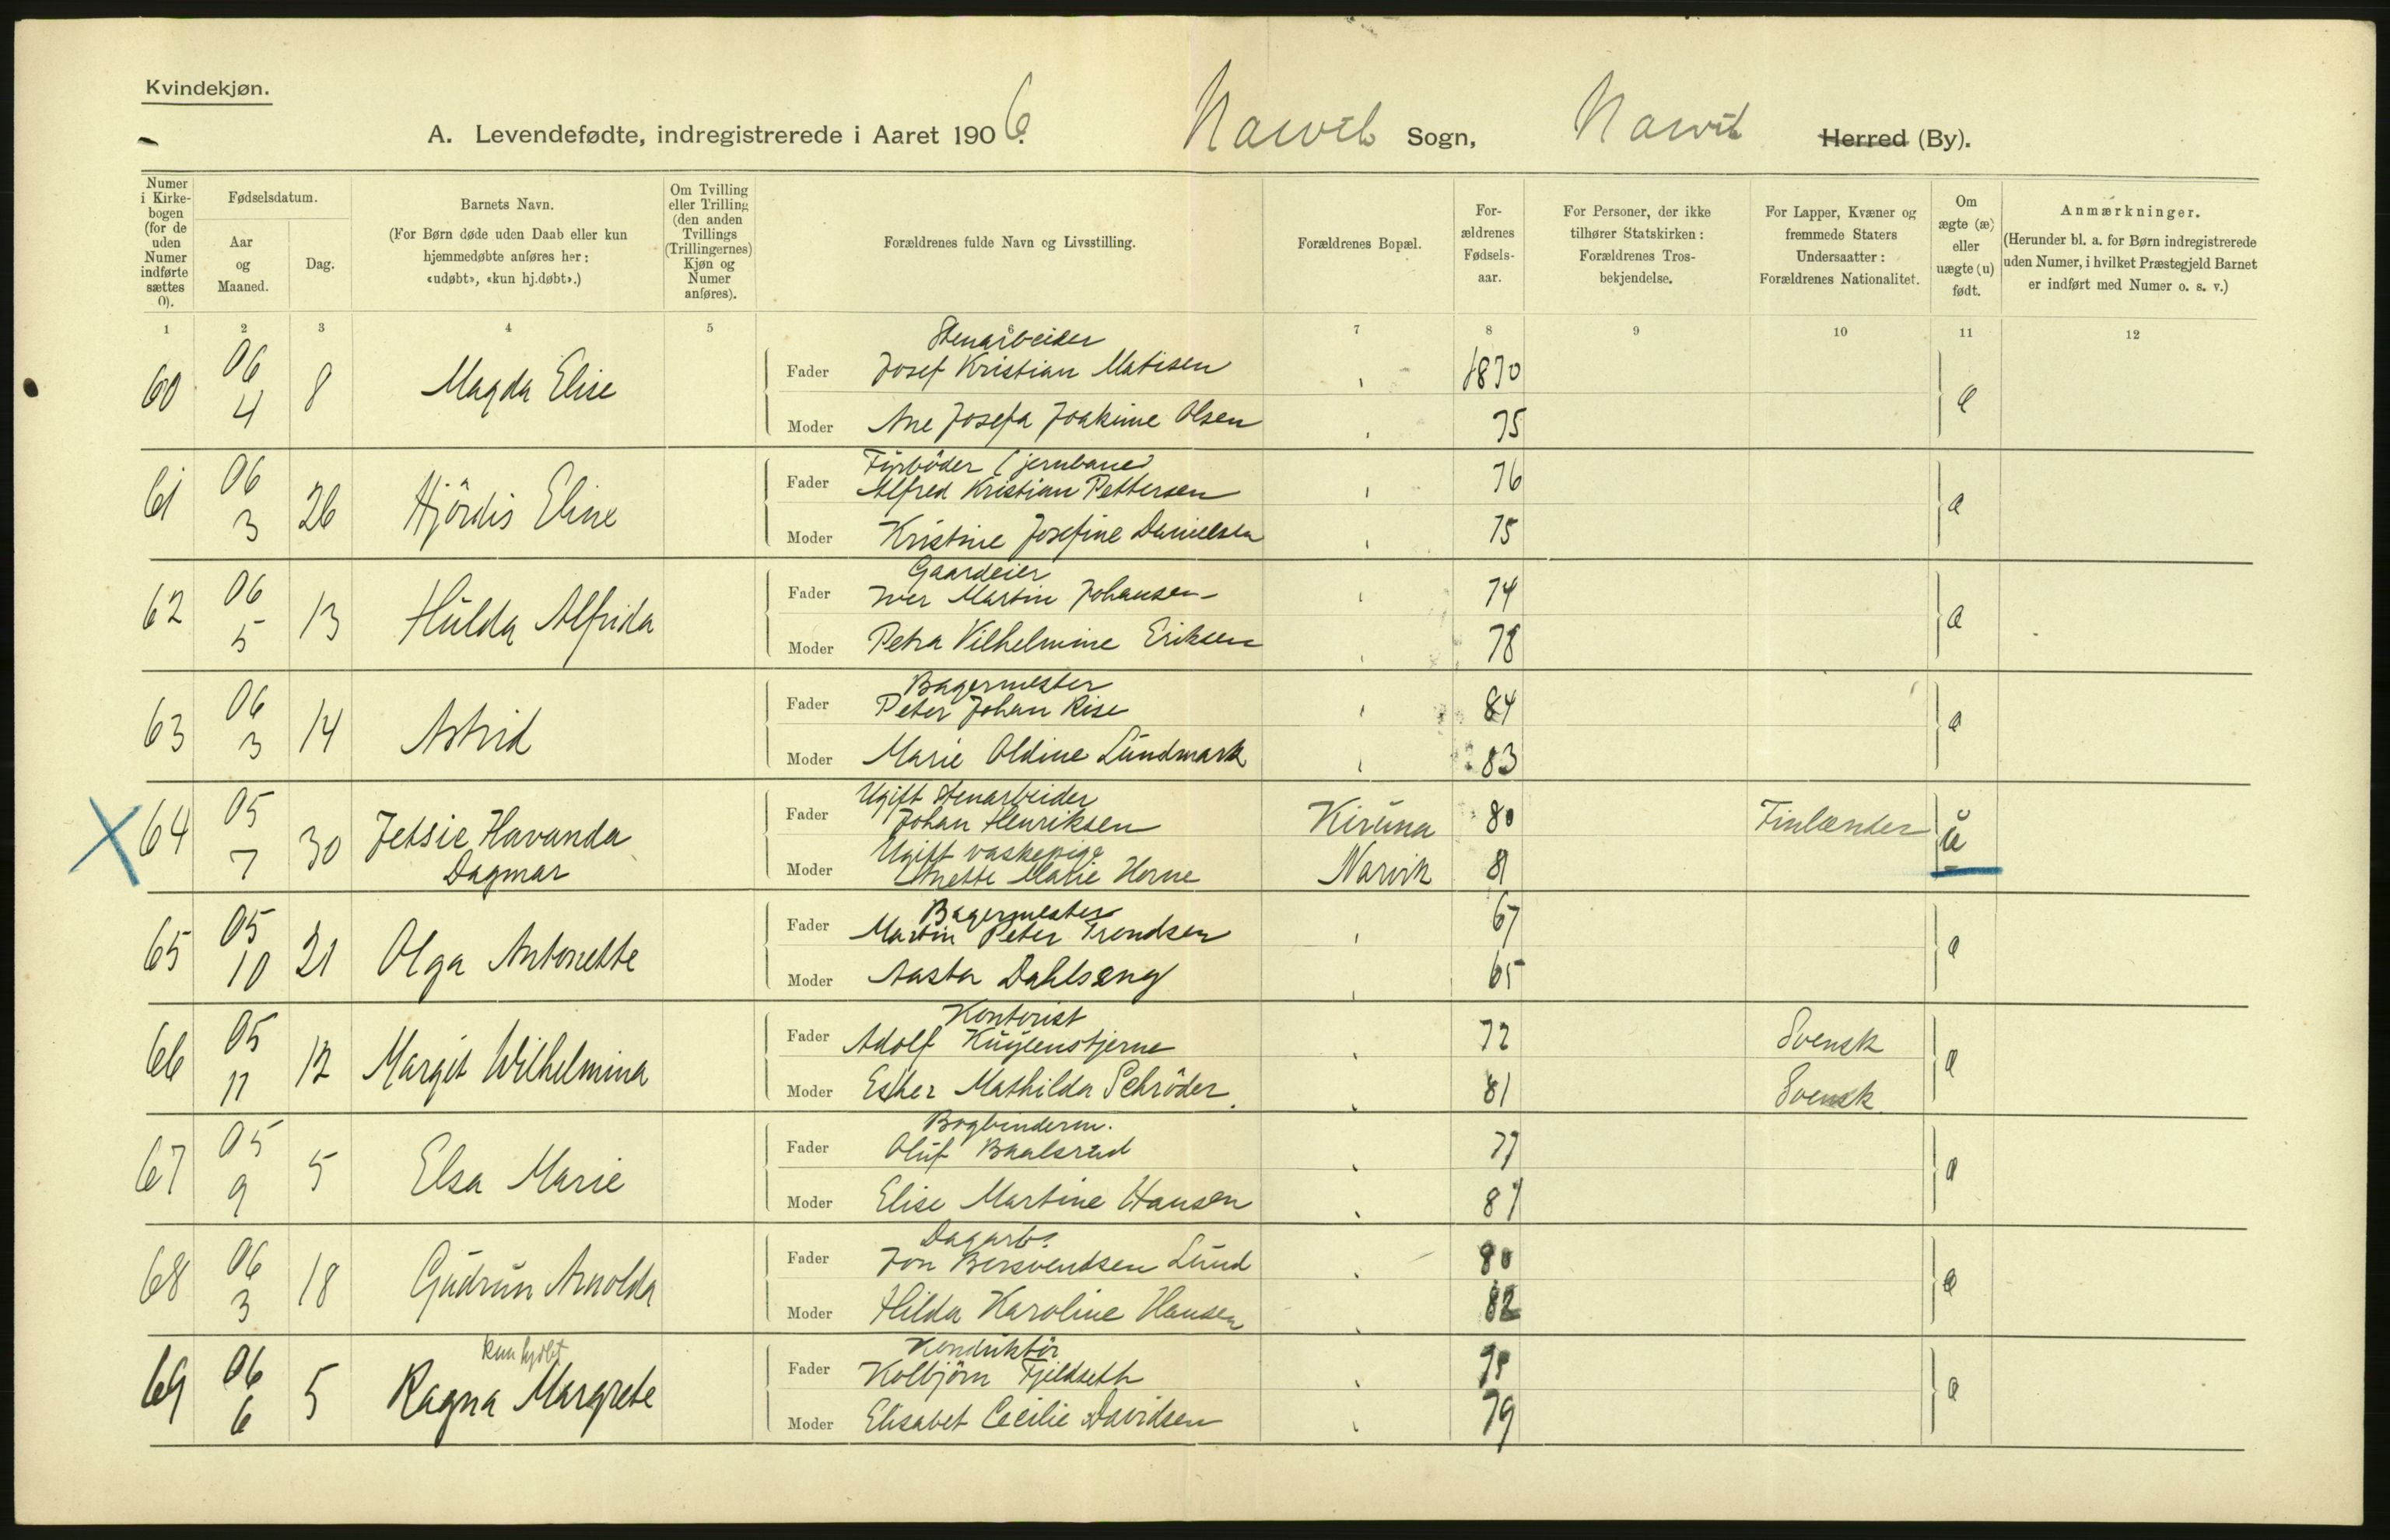 Kvindekjøn.
A. Levendefødte, indregistrerede i Aaret 1906. Narvik Sogn, Narvik Herred (By).
Numer i Kirkebogen (for de uden Numer indførte sættes 0).
Fødselsdatum.
Aar og Maaned.
Dag.
Barnets Navn.
(For Børn døde uden Daab eller kun hjemmedøbte anføres her: «udøbt», «kun hj.døbt».)
Om Tvilling eller Trilling (den anden Tvillings (Trillingernes) Kjøn og Numer anføres).
Forældrenes fulde Navn og Livsstilling.
Forældrenes Bopæl.
Forældrenes Fødselsaar.
For Personer, der ikke tilhører Statskirken: Forældrenes Trosbekjendelse.
For Lapper, Kvæner og fremmede Staters Undersaatter: Forældrenes Nationalitet.
Om ægte (æ) eller uægte (u) født.
Anmærkninger.
(Herunder bl. a. for Børn indregistrerede uden Numer, i hvilket Præstegjeld Barnet er indført med Numer o. s. v.)
1 2 3 4 5 6 7 8 9 10 11 12
Stenarbeider
60 06 4 8 Magda Elise Fader Josef Kristian Matisen 1870 æ
Moder Ane Josefa Joakime Olsen 75
Fyrbøder (jernbane)
61 06 3 26 Hjördis Eline Fader Alfred Kristian Pettersen 76 æ
Moder Kristine Josefine Danielsen 75
Gaardeier
62 06 5 13 Hulda Alfrida Fader Iver Martin Johansen 74 æ
Moder Petra Vilhelmine Eriksen 78
Bagermester
63 06 3 14 Astrid Fader Peter Johan Rise 84 æ
Moder Marie Oldine Lundmark 83
Ugift Stenarbeider
64 05 7 30 Jetsie Havanda Dagmar Fader Johan Henriksen Kiruna 80 Finlænder u
Ugift vaskepige
Moder Anette Marie Horne Narvik 81
Bagermester
65 05 10 21 Olga Antonette Fader Martin Peter Trondsen 67 æ
Moder Aasta Dahlseng 65
Kontorist
66 05 11 12 Margit Wilhelmina Fader Adolf 72 Svensk æ
Moder Esther Mathilda Schröder. 81 Svensk
Bogbinderm.
67 05 9 5 Elsa Marie Fader Oluf Baalsrud 77 æ
Moder Elise Martine Hansen 81
Dagarb.
68 06 3 18 Gudrun Arnolda Fader Jon Bersvendsen Lund 80 æ
Moder Hilda Karoline Hansen 82
kun hjdbt
Konduktör
69 06 6 5 Ragna Margrete Fader Kolbjörn Fjeldseth æ
Moder Elisabet Cecilie Davidsen 79